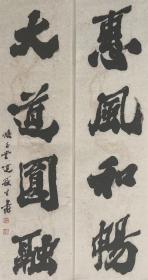 惠風和暢
大道圓融